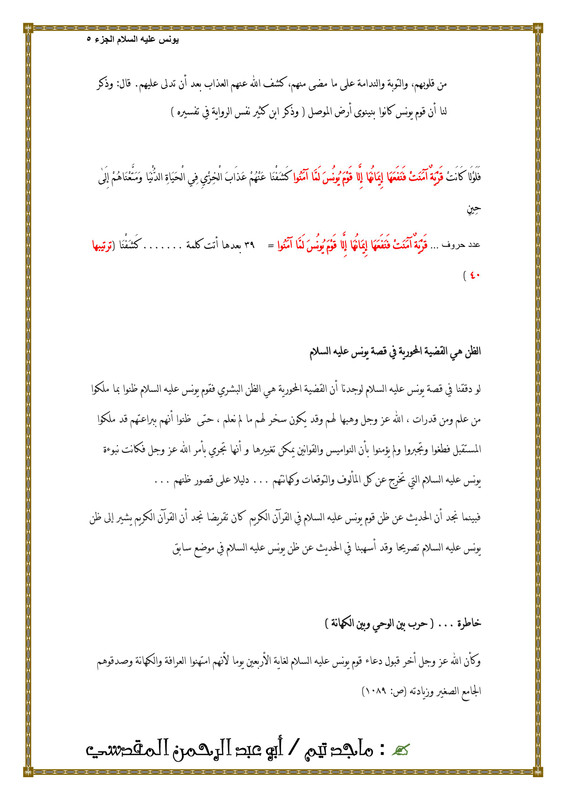 يونس عليه السلام الجزء ٥
من قلوبهم، والتوبة والندامة على ما مضى منهم، كشف الله عنهم العذاب بعد أن تدلى عليهم. قال: وذكر
لنا أن قوم يونس كانوا بنينوى أرض الموصل ( وذكر ابن كثير نفس الرواية في تفسيره )
فَلَوْلَا كَانَتْ قَرْيَةٌ آمَنَتْ فَنَفَعَهَا إِيمَانُهَا إِلَّا قَوْمَ يُونُسَ لَمَّا آمَنُوا كَشَفْنَا عَنْهُمْ عَذَابَ الْخِزْيِ فِي الْحَيَاةِ الدُّنْيَا وَمَتَّعْنَاهُمْ إِلَىٰ
حِينٍ
عدد حروف ... قَرْيَةٌ آمَنَتْ فَنَفَعَهَا إِيمَانُهَا إِلَّا قَوْمَ يُونُسَ لَمَّا آمَنُوا = ٣٩ بعدها أتت كلمة ....... كَشَفْنَا (ترتيبها
٤٠ )
الظن هي القضية المحورية في قصة يونس عليه السلام
لو دققنا في قصة يونس عليه السلام لوجدنا أن القضية المحورية هي الظن البشري فقوم يونس عليه السلام ظنوا بما ملكوا
من علم ومن قدرات ، الله عز وجل وهبها لهم وقد يكون سخر لهم ما لم نعلم ، حتى ظنوا أنهم ببراعتهم قد ملكوا
المستقبل فطغوا وتجبروا ولم يؤمنوا بأن النواميس والقوانين يمكن تغييرها و أنها تجري بأمر الله عز وجل فكانت نبوءة
يونس عليه السلام التي تخرج عن كل المألوف والتوقعات وكهانتهم ... دليلا على قصور ظنهم ...
فبينما نجد أن الحديث عن ظن قوم يونس عليه السلام في القرآن الكريم كان تقريضا نجد أن القرآن الكريم يشير إلى ظن
يونس عليه السلام تصريحا وقد أسهبنا في الحديث عن ظن يونس عليه السلام في موضع سابق
خاطرة ... ( حرب بين الوحي وبين الكهانة )
وكأن الله عز وجل أخر قبول دعاء قوم يونس عليه السلام لغاية الأربعين يوما لأنهم امتهنوا العرافة والكهانة وصدقوهم
الجامع الصغير وزيادته (ص: ١٠٨٩)
: ماجد تيم / أبو عبد الرحمن المقدسي